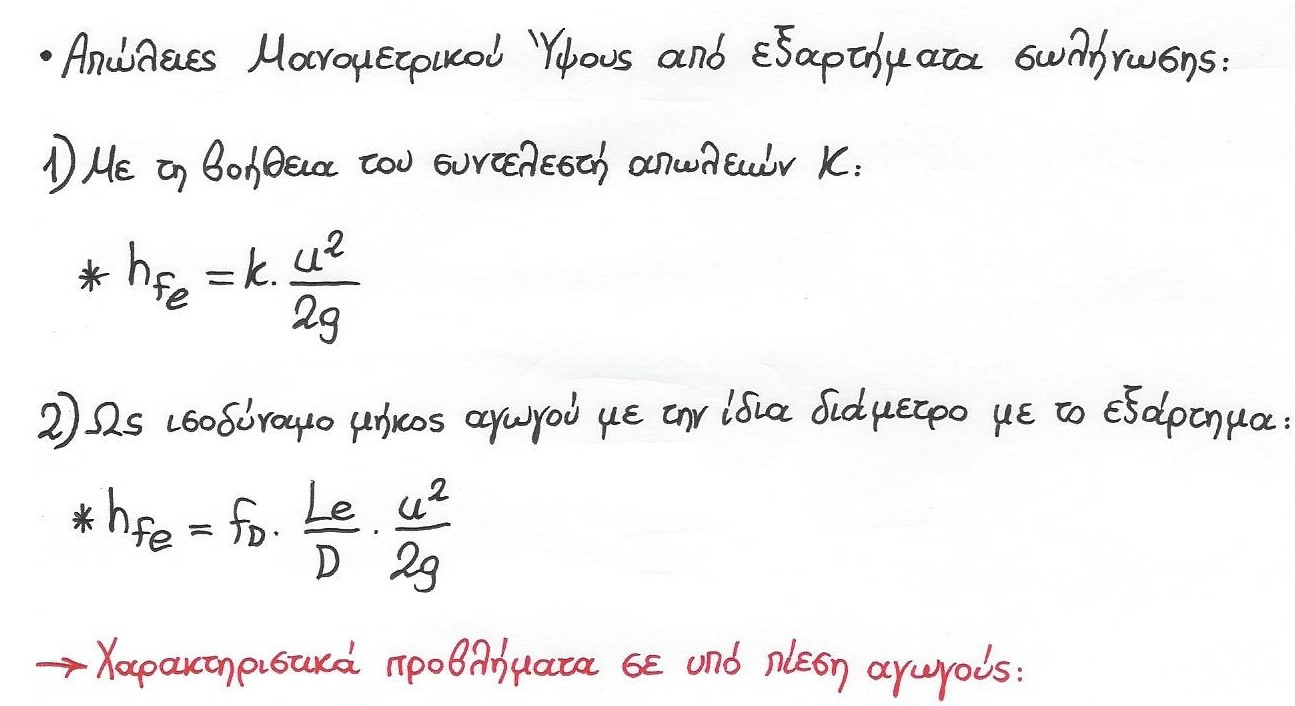 • Απώλειες Μανομετρικού Ύψους από εξαρτήματα σωλήνωσης:
1) Με τη βοήθεια του συντελεστή απωλειών K:
* h_fe = k · u²/2g
2) Ως ισοδύναμο μήκος αγωγού με την ίδια διάμετρο με το εξάρτημα:
* h_fe = f_D · Le/D · u²/2g
→ Χαρακτηριστικά προβλήματα σε υπό πίεση αγωγούς: